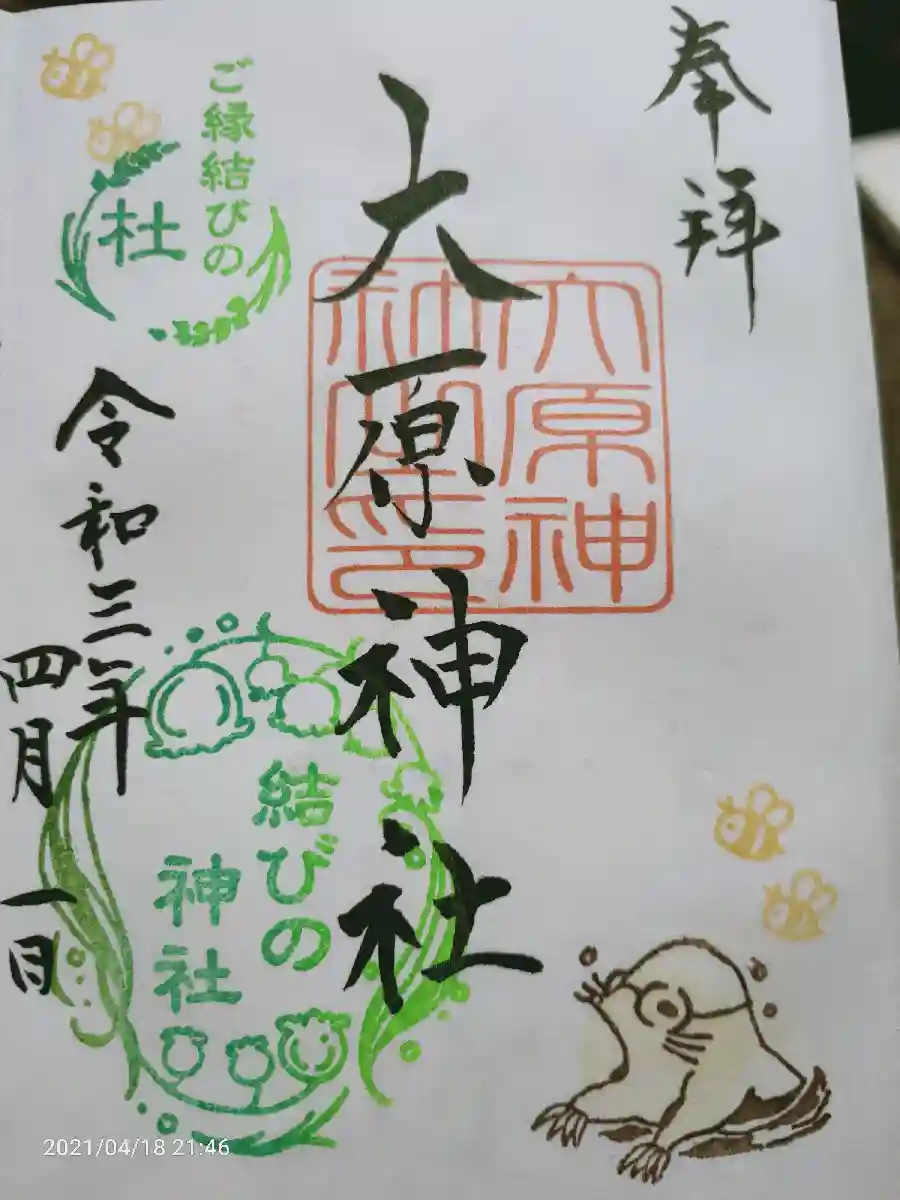 奉拝
大原神社
大原神社之印
ご縁結びの
杜
令和三年
四月一日
結びの
神社
2021/04/18 21:46